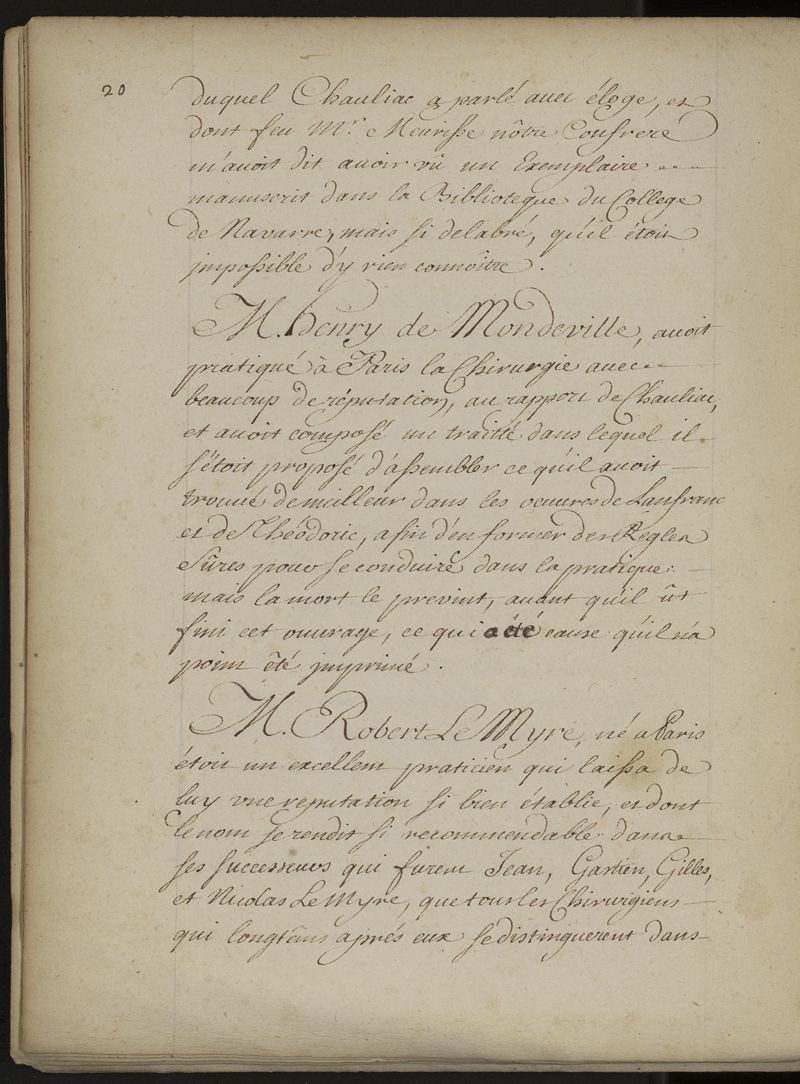 20
duquel Chauliac a parlé avec éloge, et
dont feu Mr. Meurisse nôtre Confrere
m'avoit dit avoir vû un Exemplaire
manuscrit dans la Biblioteque du College
de Navarre, mais si delabré, qu'il étoit
jmpossible d'y rien connoître.
M. henry de Mondeville, avoit
pratiqué à Paris la Chirurgie avec
beaucoup de réputation, au rapport de Chauliac,
et avoit composé un traitté dans lequel il
s'étoit proposé d'assembler ce qu'il avoit
trouvé de meilleur dans les oeuvres de Lanfranc
et de Théodoric, afin d'en former des Regles
sûres pour se conduire dans la pratique:
mais la mort le prevint, avant qu'il ût
fini cet ouvrage, ce qui a été cause qu'il n'a
point été jmprimé.
M. Robert Le Myre, né a Paris
étoit un excellent praticien qui laissa de
luy vne reputation si bien établie, et dont
le nom se rendit si recommendable dans
ses successeurs qui furent Jean, Gartien, Gilles,
et Nicolas Le Myre, que tous les Chirurgiens
qui longtêms aprés eux se distinguerent dans